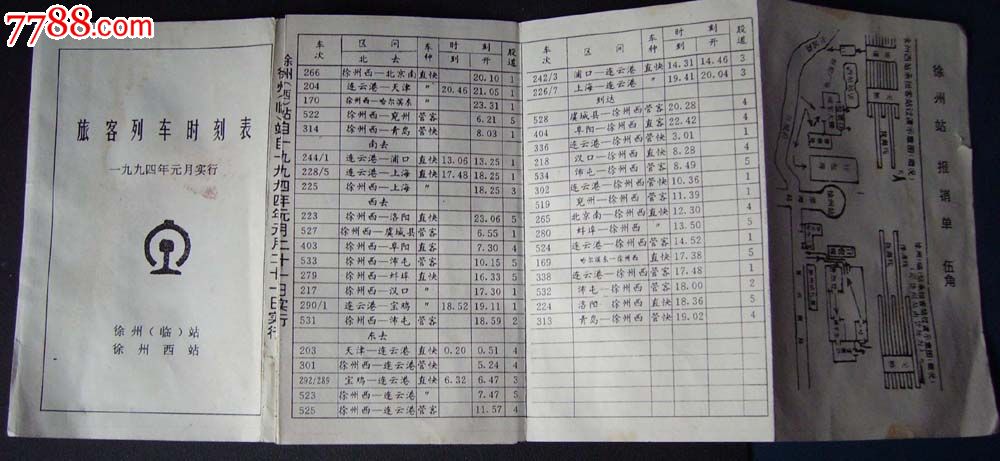 7788.com
中国收藏热线
旅客列车时刻表
一九九四年元月实行
徐州（临）站
徐州西站
徐州(西)(临)站自一九九四年元月二十一日实行
车次 区间 车种 时刻 股道
北去 到 开
266 徐州西—北京南 直快 20.10 1
204 连云港—天津 〃 20.46 21.05 1
170 徐州西—哈尔滨东 〃 23.31 1
522 徐州西—兖州 管客 6.21 5
314 徐州西—青岛 管快 8.03 1
南去
244/1 连云港—浦口 直快 13.06 13.25 1
228/5 连云港—上海 直快 17.48 18.25 1
225 徐州西—上海 〃 18.25 3
西去
223 徐州西—洛阳 直快 23.06 5
527 徐州西—虞城县 管客 6.55 1
403 徐州西—阜阳 直客 7.30 4
533 徐州西—沛屯 管客 10.15 5
279 徐州西—蚌埠 直快 16.33 5
217 徐州西—汉口 〃 17.30 1
290/1 连云港—宝鸡 〃 18.52 19.11 1
531 徐州西—沛屯 管客 18.59 2
东去
203 天津—连云港 直快 0.20 0.51 4
301 徐州西—连云港 管快 5.24 4
292/289 宝鸡—连云港 直快 6.32 6.47 3
523 徐州西—连云港 〃 7.47 5
525 徐州西—连云港 管客 11.57 4
车次 区间 车种 时刻 股道
到 开
242/3 浦口—连云港 直快 14.31 14.46 3
226/7 上海—连云港 〃 19.41 20.04 3
到达
528 虞城县—徐州西 管客 20.28 4
404 阜阳—徐州西 直客 22.42 4
336 连云港—徐州西 管快 3.01 1
218 汉口—徐州西 直快 8.28 1
534 沛屯—徐州西 管客 8.49 5
302 连云港—徐州西 管快 10.36 1
519 兖州—徐州西 管客 11.39 1
265 北京南—徐州西 直快 12.30 4
280 蚌埠—徐州西 〃 13.50 5
524 连云港—徐州西 管客 14.52 1
169 哈尔滨东—徐州西 直快 17.38 5
338 连云港—徐州西 管快 17.48 1
532 沛屯—徐州西 管客 18.00 2
224 洛阳—徐州西 直快 18.36 5
313 青岛—徐州西 管快 19.02 4
徐州站 报销单 伍角